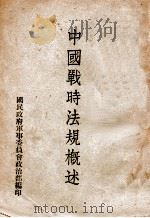 中國戰時法規概述
國民政府軍事委員會政治部編印